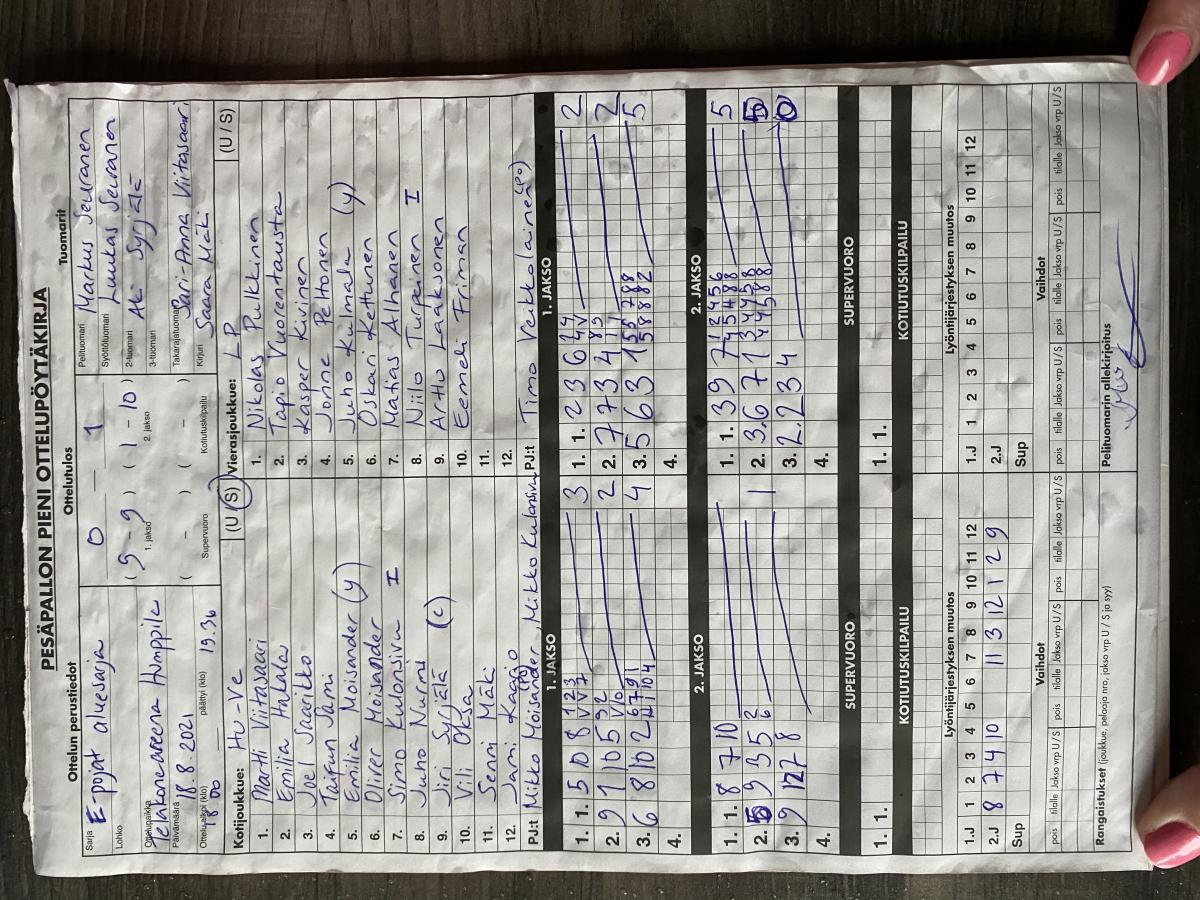 PESÄPALLON PIENI OTTELUPÖYTÄKIRJA
Ottelun perustiedot
Sarja E-pojat aluesarja
Lohko
Ottelupaikka Telakoneareena Humppila
Päivämäärä 18.8.2021
Ottelualkoi (klo) 18 00 päättyi (klo) 19.36
Ottelutulos
0 — 1
(9 - 9) (1 - 10)
1. jakso 2. jakso
( - ) ( - )
Supervuoro Kotiutuskilpailu
Tuomarit
Pelituomari Markus Seuranen
Syöttötuomari Luukas Seuranen
2-tuomari Aki Syrjälä
3-tuomari
Takarajatuomari Sari-Anna Viitasaari
Kirjuri Saara Mäki
Kotijoukkue: Hu-Ve (U / S)
1. Martti Viitasaari
2. Emilia Hakala
3. Joel Saarikko
4. Taifun Sami
5. Emilia Moisander (y)
6. Oliver Moisander
7. Simo Kulonsivu I
8. Juho Nurmi
9. Jiri Syrjälä (c)
10. Vili Oksa
11. Senni Mäki
12. Jami Kaario
PJ:t Mikko Moisander (PO), Mikko Kulonsivu
Vierasjoukkue: LP (U / S)
1. Nikolas Pulkkinen
2. Tapio Vuorentausta
3. Kasper Kivinen
4. Jonne Peltonen
5. Juho Kulmala (y)
6. Oskari Kettunen
7. Matias Alhanen
8. Niilo Turpeinen I
9. Arttu Laaksonen
10. Eemeli Friman
11.
12.
PJ:t Timo Veikkolainen (PO)
1. JAKSO
1. 1. 5 10 8 1 2 3 V V 7 3
2. 9 1 10 5 9 2 V 10 2
3. 6 8 10 2 6 7 9 1 4
4.
1. JAKSO
1. 1. 2 3 6 3 4 4 V 2
2. 7 7 3 4 8 5 1 1 2
3. 5 6 3 1 5 5 7 8 8 5 8 8 8 2 5
4.
2. JAKSO
1. 1. 8 7 10
2. 5 9 3 5 2 6 1
3. 9 12 7 8
4.
2. JAKSO
1. 1. 3 9 7 1 2 4 5 6 4 5 4 8 8 5
2. 3 6 7 1 3 4 4 5 8 4 4 5 8 8 5
3. 2 2 3 4 0
4.
SUPERVUORO
1. 1.
SUPERVUORO
1. 1.
KOTIUTUSKILPAILU
KOTIUTUSKILPAILU
Lyöntijärjestyksen muutos
1.J 1 2 3 4 5 6 7 8 9 10 11 12
2.J 8 7 4 10 11 3 12 1 2 9
Sup
Lyöntijärjestyksen muutos
1.J 1 2 3 4 5 6 7 8 9 10 11 12
2.J
Sup
Vaihdot
pois tilalle Jakso vrp U / S pois tilalle Jakso vrp U / S pois tilalle Jakso vrp U / S
Vaihdot
pois tilalle Jakso vrp U / S pois tilalle Jakso vrp U / S pois tilalle Jakso vrp U / S
Rangaistukset (joukkue, pelaaja nro, jakso vrp U / S ja syy)
Pelituomarin allekirjoitus